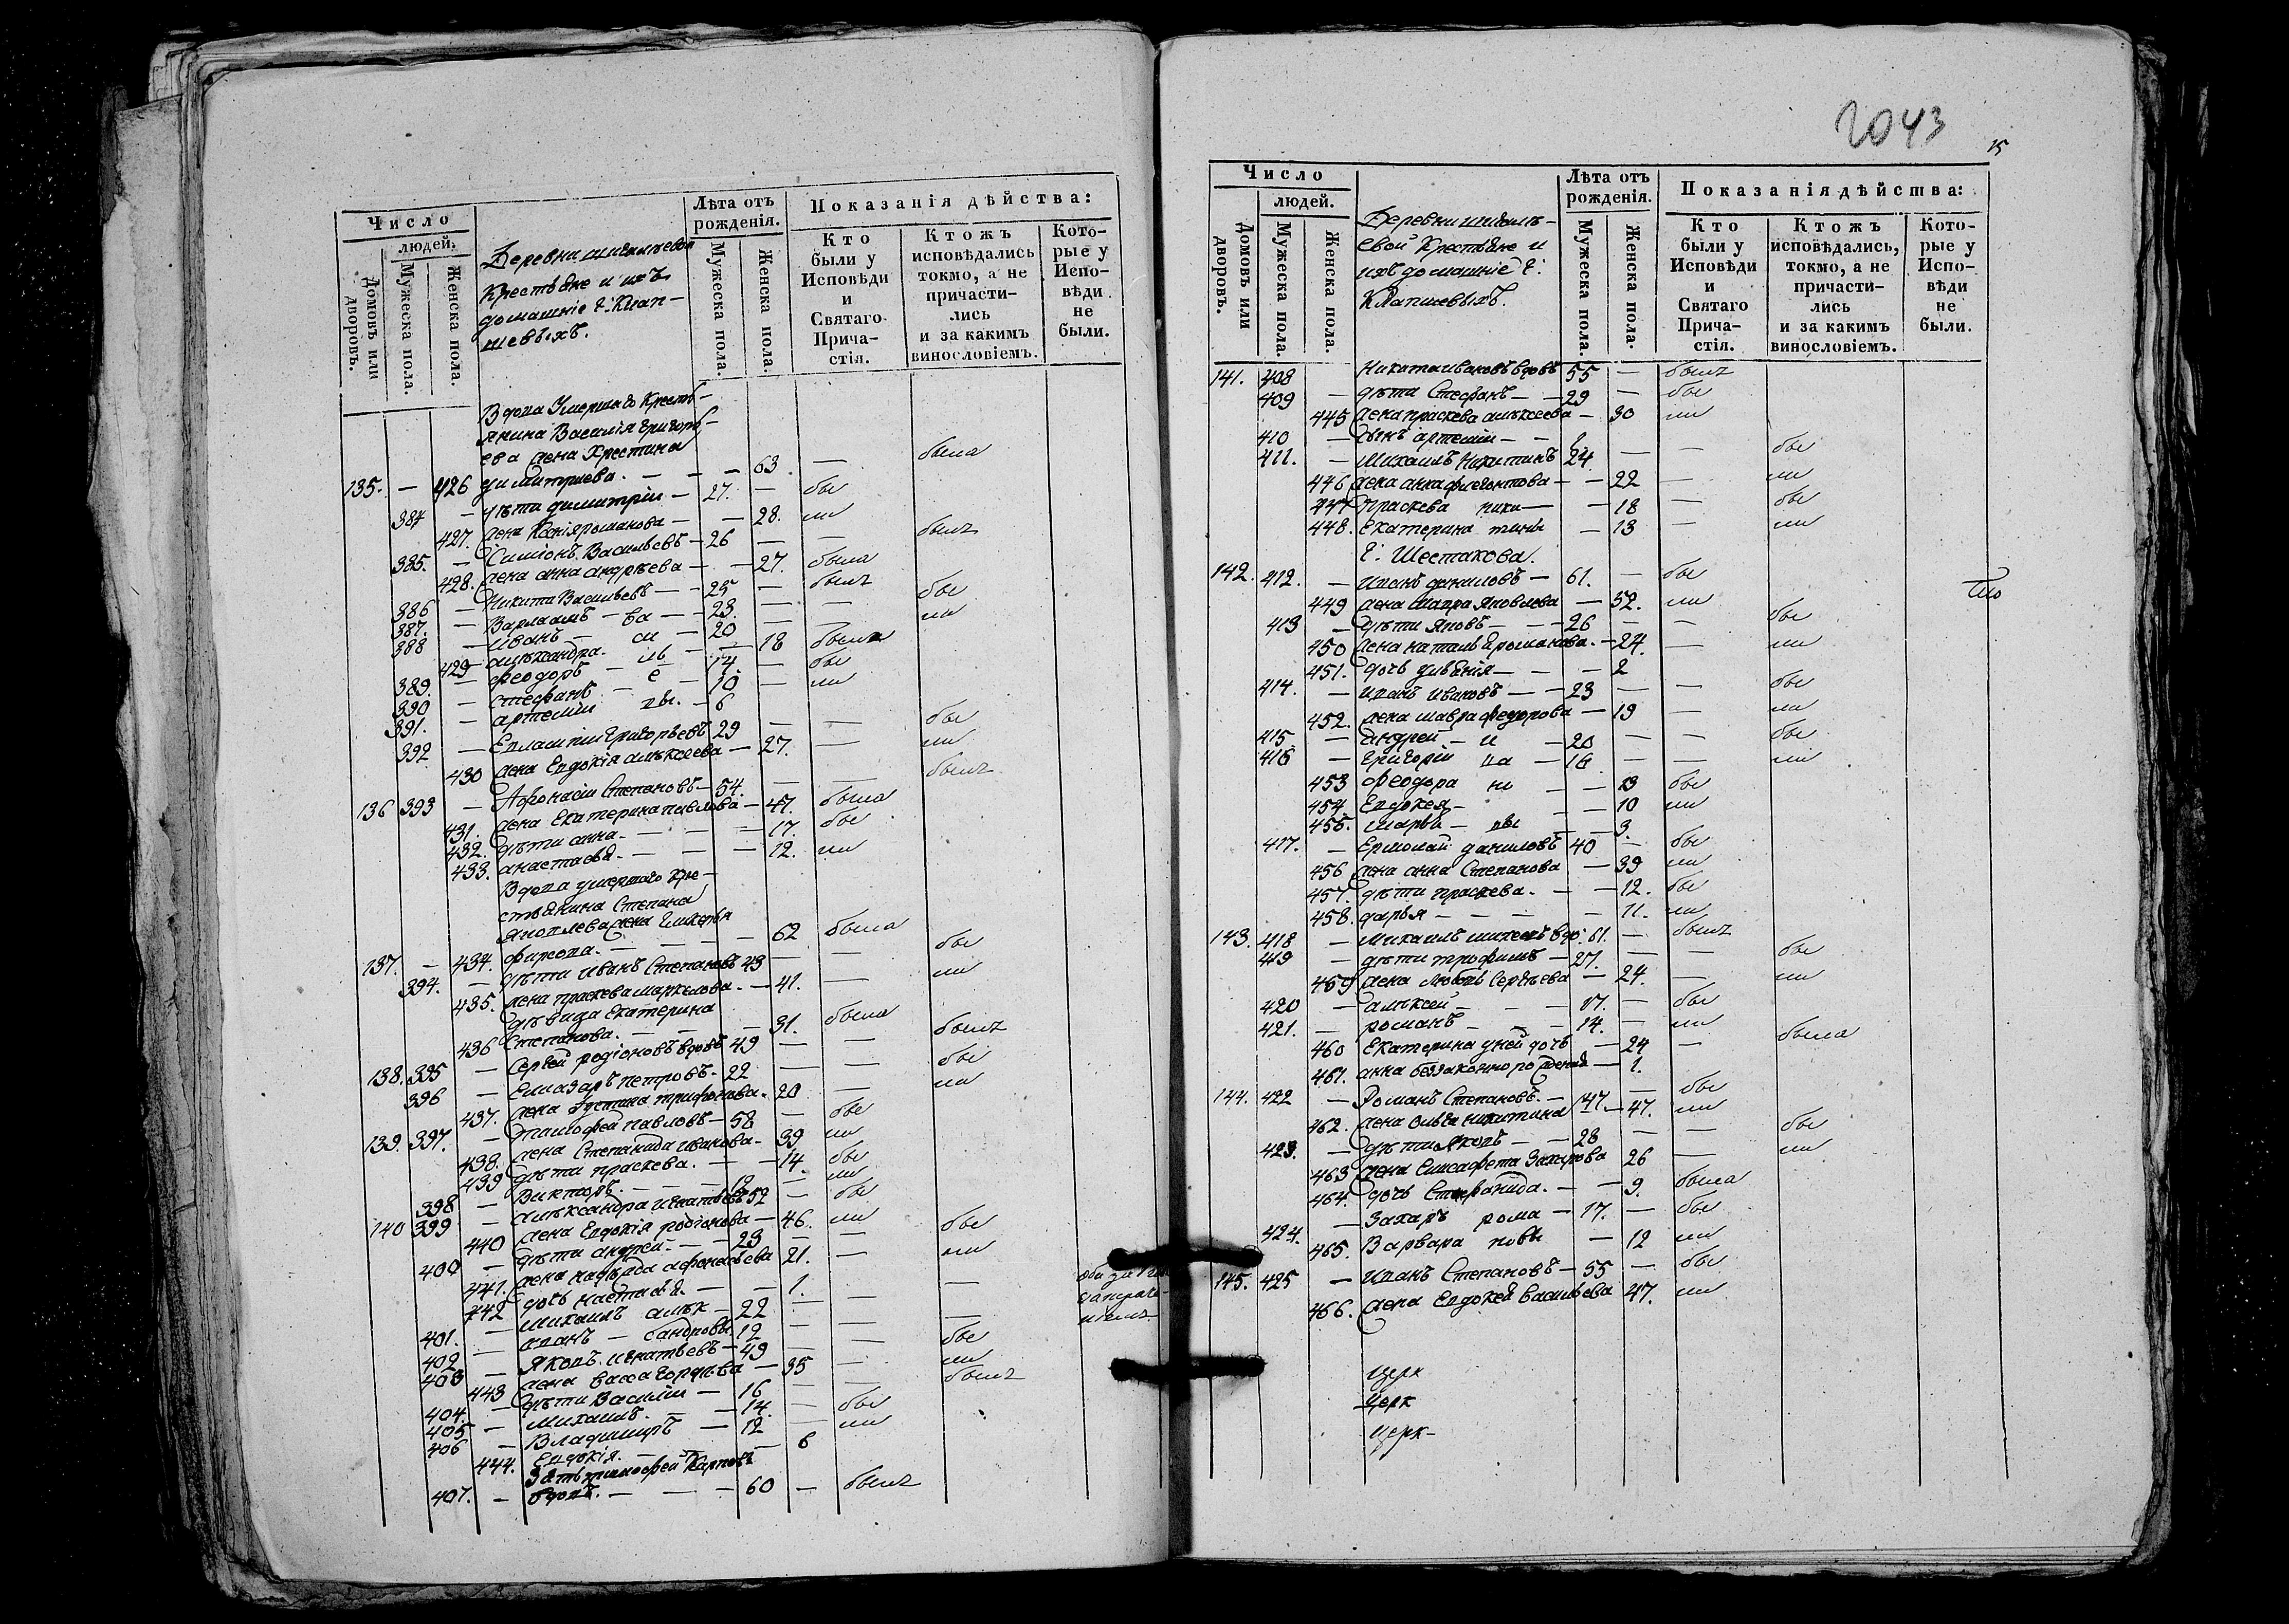 Число
людей.
Домовъ или дворовъ.
Мужеска пола.
Женска пола.
Деревни
Крестьяне и ихъ
домашніе Г: Клап-
шевыхъ.
Лѣта отъ рожденія.
Мужеска пола.
Женска пола.
Показанія дѣйства:
Кто были у Исповѣди и Святаго Прича-стія.
Ктожъ исповѣдались токмо, а не причасти-лись и за какимъ винословіемъ.
Кото-рые у Испо-вѣди не были.
Вдова Умершаго Кресть-
янина Василія Григорь-
ева жена Христина была
135. — 426 димитриева. — — — 63 —
384 — дѣти димитріи — 27. — бы
427. жена романова — — 28. ли
385. — Симіонъ Васильевъ — 26 — — былъ
428. жена анна андрѣева — — 27. была
386 — Никита Васильевъ — 25 — былъ
387. — Варлаамъ — ва — 23. — — бы
388 — Иванъ — си — 20 — — ли
429 — александра. — 18 была
389. — феодоръ — ль — 14. — бы
390 — стефанъ — е — 10 — ли
391. — артеміи вы. — 6
392 — Григорьевъ 29 — — бы
430 жена Евдокія алексеева — 27. — ли
136 393 — Афонасіи Степановъ — 54. — — былъ
431. жена Екатерина павлова — 47. была
432. дѣти анна — — — 17. бы
433. анастасія — — — 12. ли
Вдова умершаго кре-
стьянина Степана
Яковлева жена
137. — 434. фирсова. — — — 62 была
394. — дѣти Иванъ Степановъ 43 — — бы
435. жена праскева маркелова. — 41. — ли
дѣвица Екатерина
436 Степанова. — — — 31. была
138. 395 — Сергѣй родіоновъ вдовъ 49 — — былъ
396 — Елизаръ петровъ — 22 — — бы
437. жена трифонова. 20 — ли
139. 397. — тимофей павловъ — 58 — бы
438. жена Степанида иванова — 39 ли
439 дѣти праскева. — — 14. бы
398 — Викторъ. — — — 12 — ли
140 399 — александра игнатьевъ 52 — бы
440 жена Евдокія родіонова — 46. ли
400 — дѣти андрей. — — 23 — — бы
441. жена надѣжда афонасьева 21. — ли
442 дочь настасья. — — 1. — —
401. — михаилъ алек — 22 — — —
402 — иванъ — сандровы 12 — — бы
403 — Яковъ. игнатьевъ — 49 — — ли
443 жена васса — 35 — былъ
404. — дѣти Василіи — 16 —
405 — михаилъ. — — 14. — бы
406 — Владимиръ — 12 — ли
444. Евдокія. — — — 6
Зять тимофей Карповъ
407. — вдовъ. — — — 60 — былъ
2043
15
Число
людей.
Домовъ или дворовъ.
Мужеска пола.
Женска пола.
Деревни
евой Крестьяне и
ихъ домашніе Г:
Клапшевыхъ.
Лѣта отъ рожденія.
Мужеска пола.
Женска пола.
Показанія дѣйства:
Кто были у Исповѣди и Святаго Прича-стія.
Ктожъ исповѣдались, токмо, а не причасти-лись и за какимъ винословіемъ.
Кото-рые у Испо-вѣди не были.
141. 408 Никита ивановъ вдовъ 55 — былъ
409 — дѣти Стефанъ — — 29 — бы
445 жена праскева алексеева — 30 ли
410 — сынъ артеміи — — 2
411. — Михаилъ Никитинъ 24 — — бы
446 жена анна — — 22 — ли
447 праскева ники — — 18 — бы
448. Екатерина тины — 13 — ли
Г: Шестакова.
142. 412. — иванъ даниловъ — 61. — бы
449 жена мавра Яковлева — 52. ли
413 — дѣти Яковъ — — 26 — — бы
450 жена наталья романова. — 24. — ли
451. дочь — — 2
414. — иванъ ивановъ — — 23 — — бы
452. жена мавра федорова — 19 — ли
415 — андрей — и — 20 — — бы
416 — Григоріи ва — 16 — — ли
453 феодора но — — 13 бы
454 Евдокея — — — 10 ли
455. марья — вы — — 3.
417. — Ермолай даниловъ 40 — бы
456 жена анна Степанова — 39 ли
457. дѣти праскева. — — 12. бы
458. дарья — — — — 11. ли
143. 418 — Михаилъ вдо: 61. — былъ
419 — дѣти трофимъ — 27. — — бы
459 жена любовь Сергѣева — 24. — ли
420 — алексей — — 17. — бы
421. — романъ — — — 14. — ли
460 Екатерина у ней дочь — 24 — была
461. анна беззаконно рожденая — 1.
144. 422 — Романъ Степановъ. — 47 — бы
462. жена Ольга никитина — 47. ли
423. — дѣти Яковъ — — 28 — — бы
463 жена Елисафета Захарова 26 — ли
464. дочь Степанида. — — 9. была
424. — Захаръ рома — 17. — бы
465. Варвара новы — 12 ли
145. 425 — иванъ Степановъ — 55 — бы
466. жена Евдокея васильева 47. ли
церк
церк
церк-